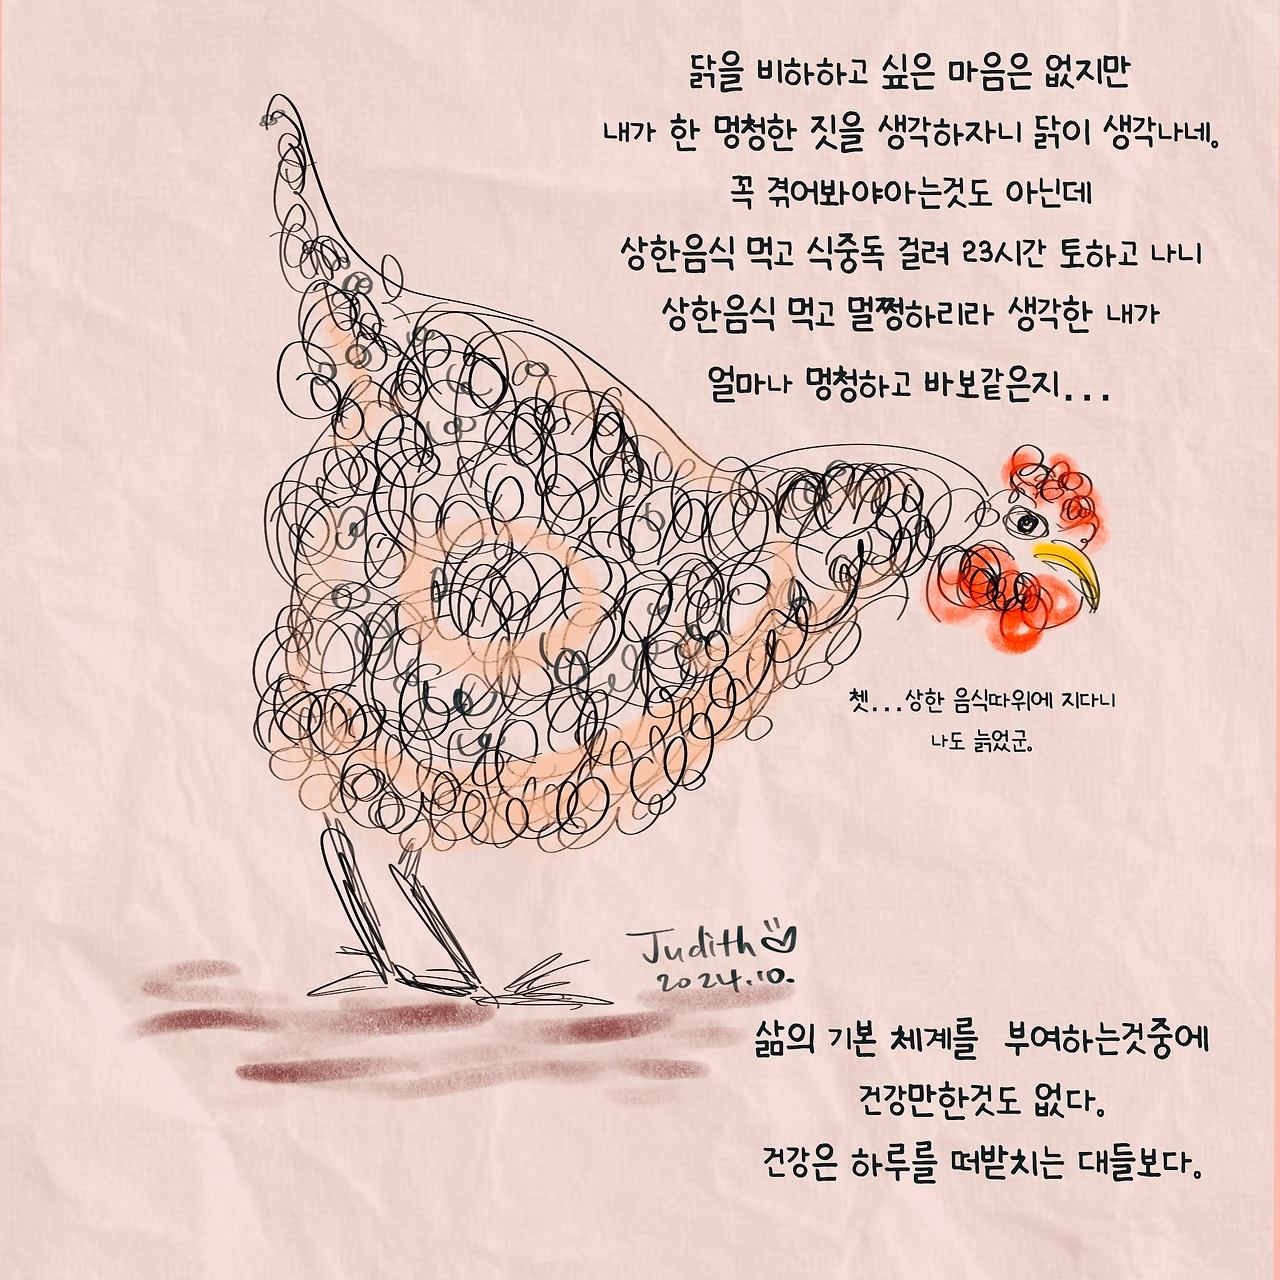 닭을 비하하고 싶은 마음은 없지만
내가 한 멍청한 짓을 생각하자니 닭이 생각나네.
꼭 겪어봐야아는것도 아닌데
상한음식 먹고 식중독 걸려 23시간 토하고 나니
상한음식 먹고 멀쩡하리라 생각한 내가
얼마나 멍청하고 바보같은지...
쳇...상한 음식따위에 지다니
나도 늙었군.
Judith
2024.10.
삶의 기본 체계를 부여하는것중에
건강만한것도 없다.
건강은 하루를 떠받치는 대들보다.